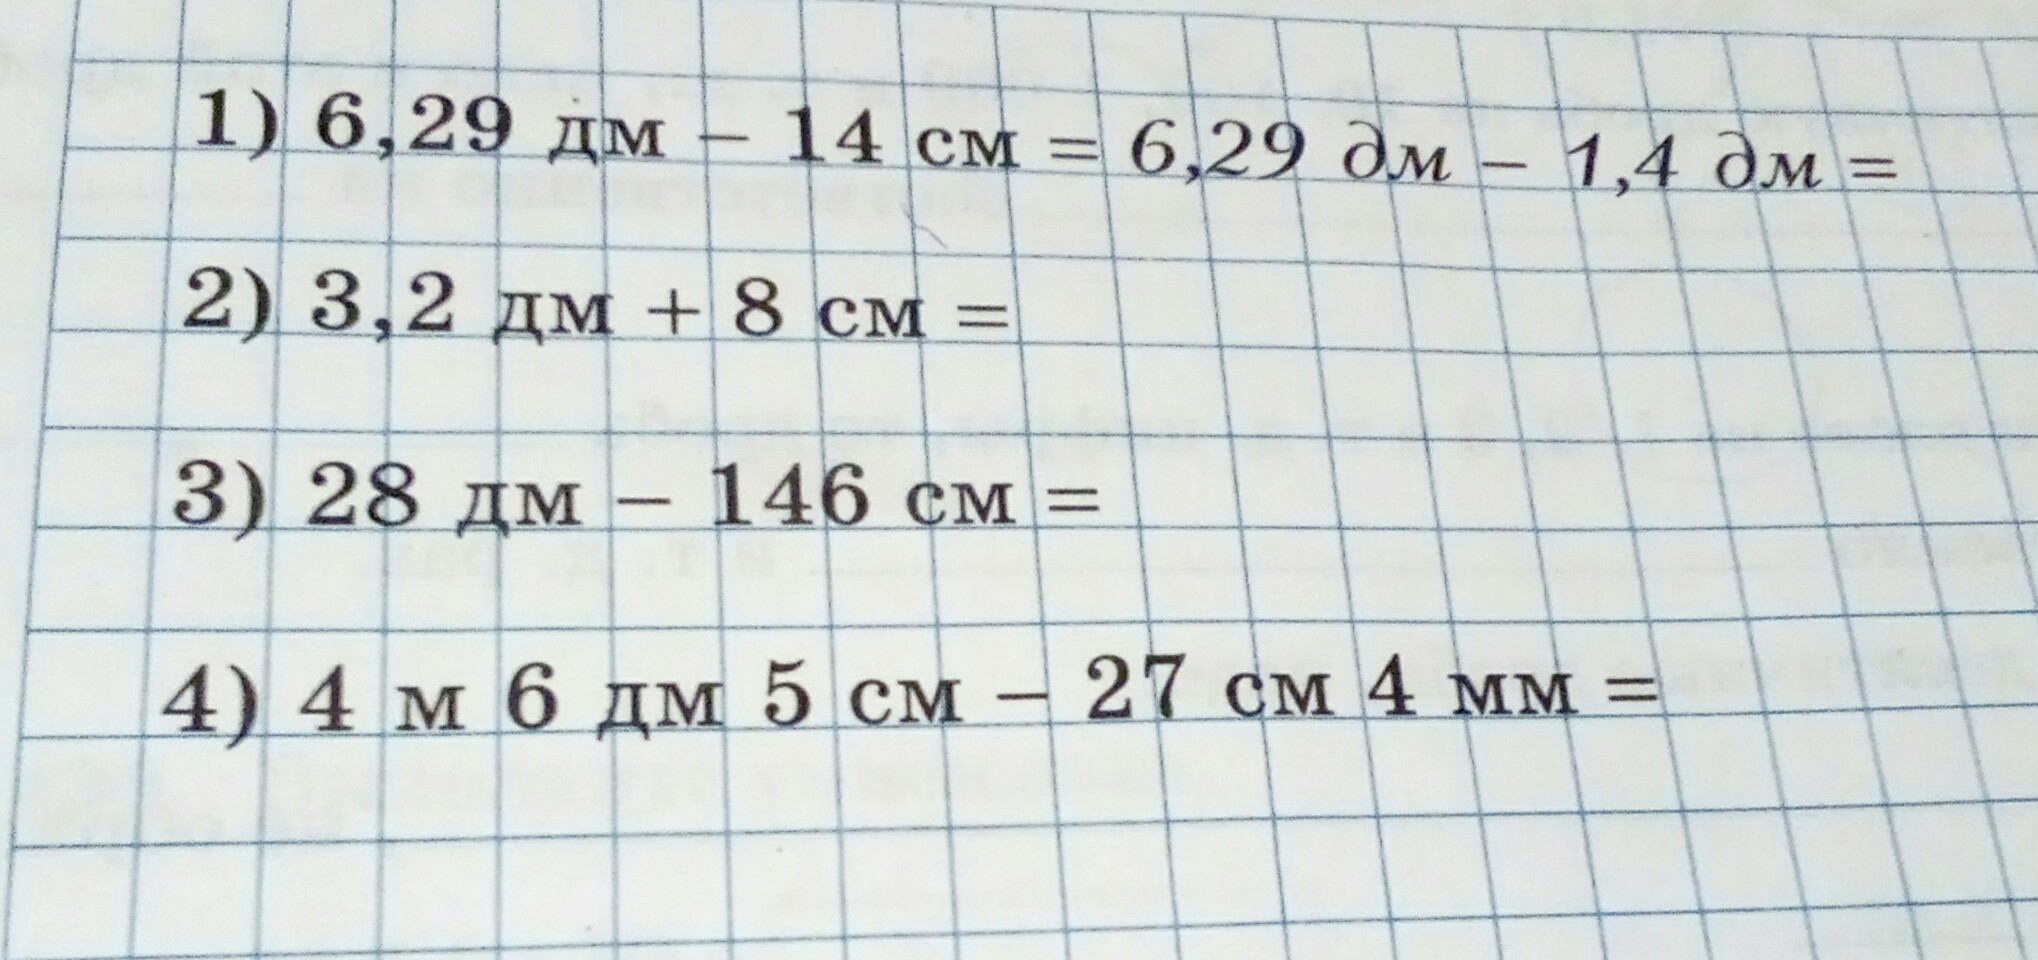 1) 6,29 дм – 14 см = 6,29 дм – 1,4 дм =
2) 3,2 дм + 8 см =
3) 28 дм – 146 см =
4) 4 м 6 дм 5 см – 27 см 4 мм =